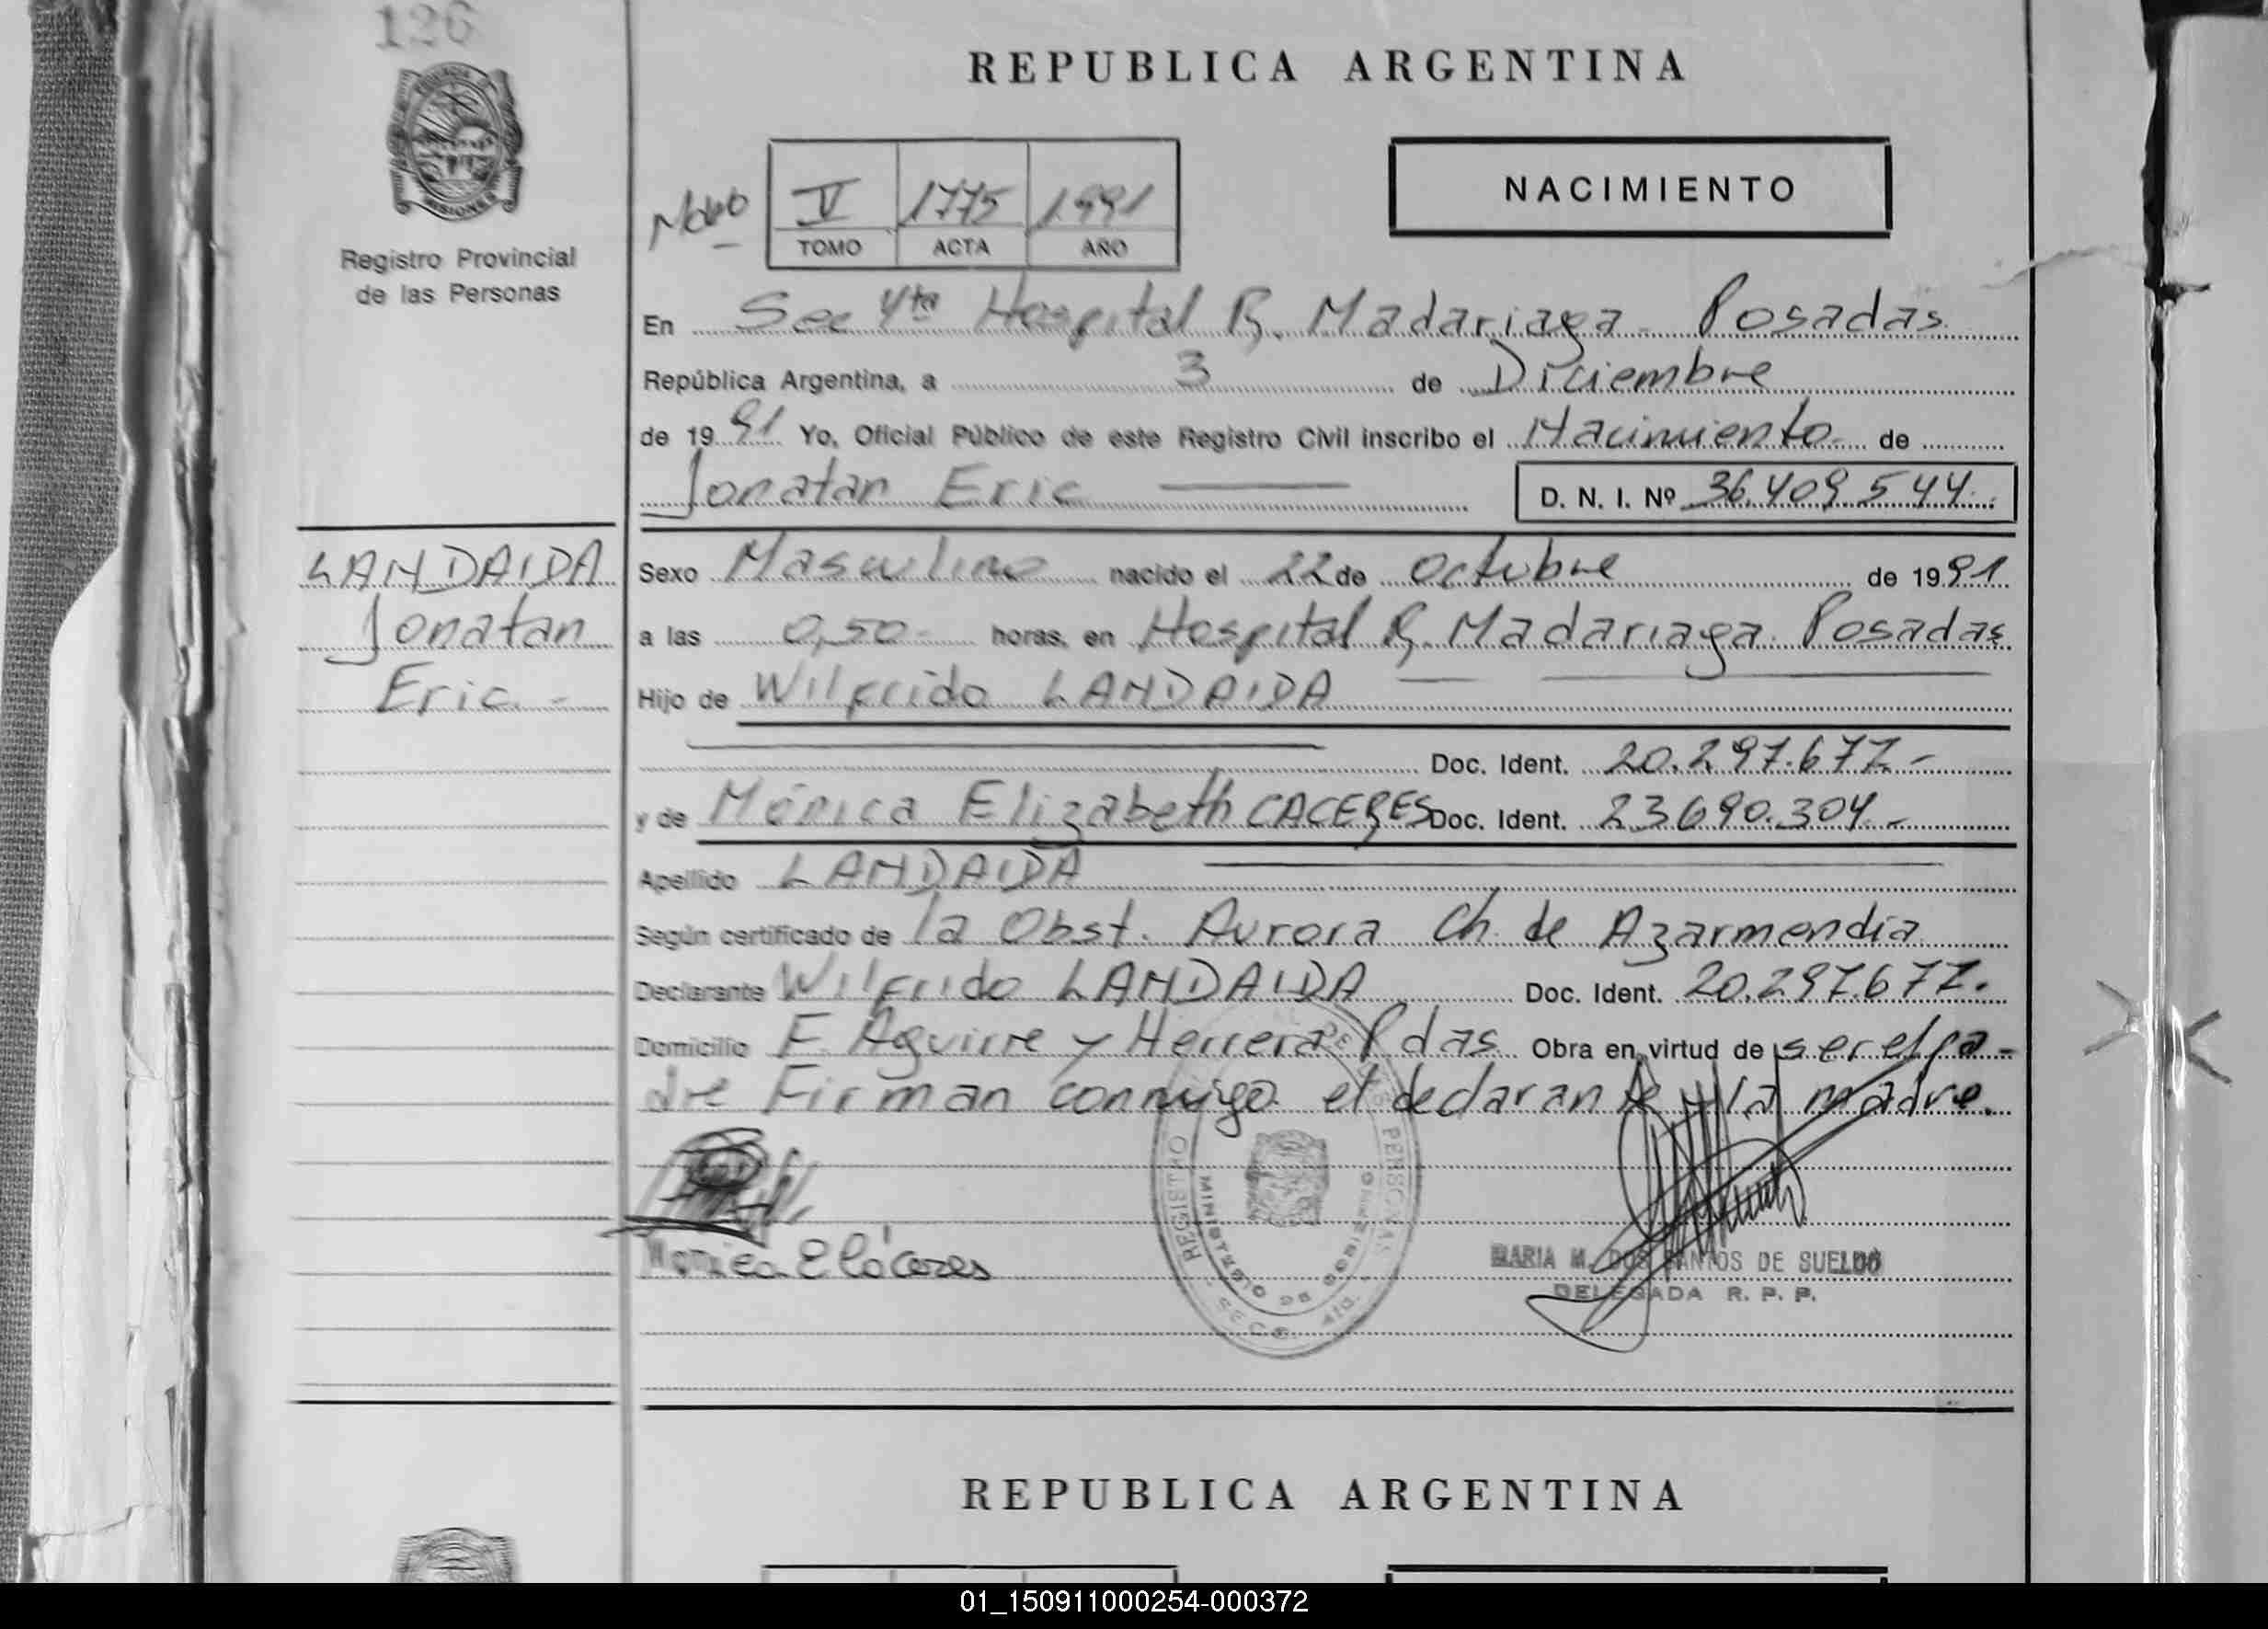 126
REPUBLICA ARGENTINA
MISIONES
Registro Provincial
de las Personas
V 1775 1991
TOMO ACTA AÑO
NACIMIENTO
En Sec 4ta Hospital R. Madariaga - Posadas
República Argentina, a 3 de Diciembre
de 1991 Yo, Oficial Público de este Registro Civil inscribo el Nacimiento de
Jonatan Eric D. N. I. Nº 36.409.544.
LANDAIDA
Jonatan
Eric. -
Sexo Masculino nacido el 22 de Octubre de 1991
a las 0,50- horas, en Hospital R. Madariaga. Posadas
Hijo de Wilfrido LANDAIDA
Doc. Ident. 20.297.677.-
y de Mónica Elizabeth CACERES Doc. Ident. 23.690.304.-
Apellido LANDAIDA
Según certificado de la Obst. Aurora Ch. de Azarmendia
Declarante Wilfrido LANDAIDA Doc. Ident. 20.297.677.
Domicilio F. Aguirre y Herrera Pdas Obra en virtud de ser el pa-
dre Firman conmigo el declarante y la madre.
Monica E Cáceres
REGISTRO PERSONAS
MINISTERIO DE GOBIERNO
MARIA M. DOS SANTOS DE SUELDO
DELEGADA R. P. P.
REPUBLICA ARGENTINA
01_150911000254-000372